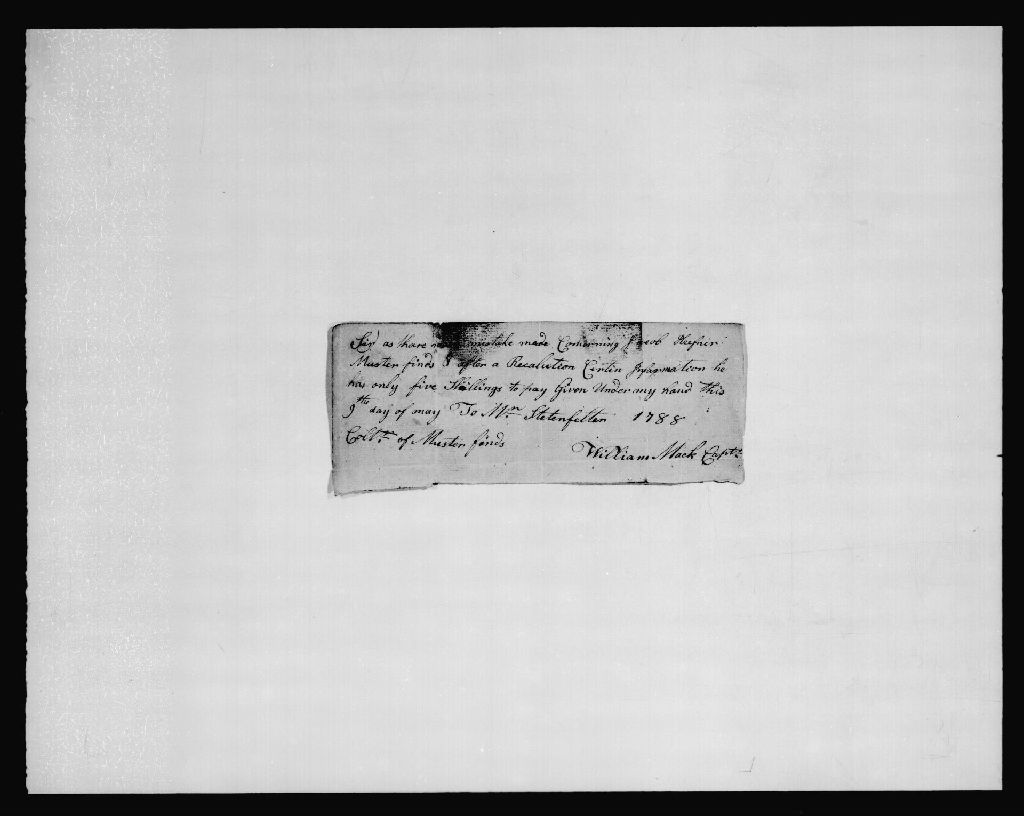 Sir as thare was mistake made Concerning Jacob
Muster finds & after a Recalution Certin Information he
has only five Shillings to pay Given Under my hand this
9th day of may To Mr. Stetenfelter 1788
Collt. of Muster finds
William Mack Capt.